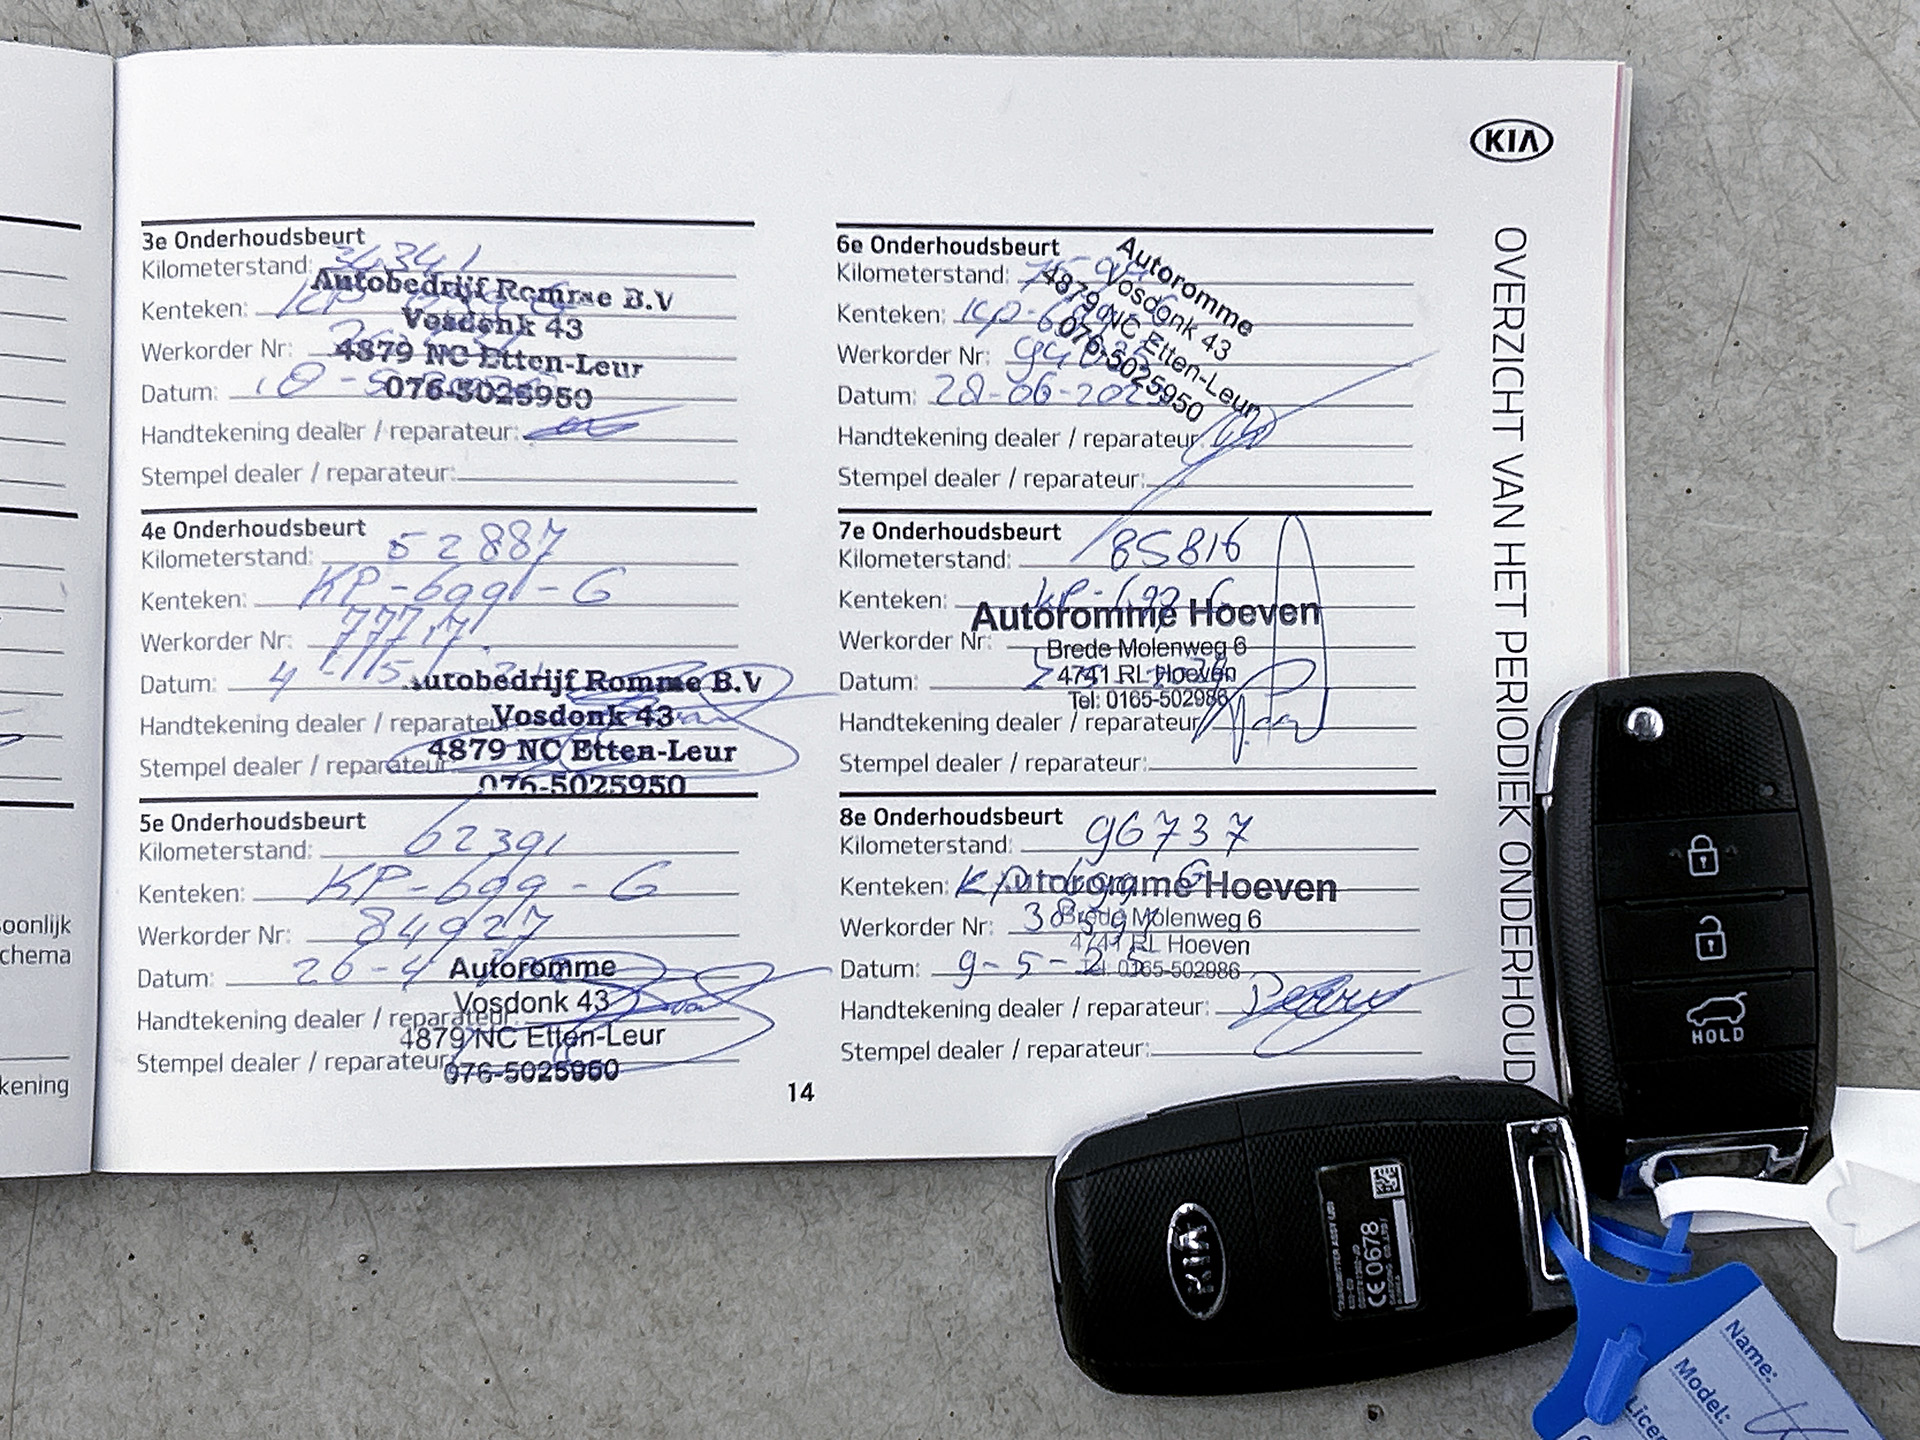 KIA
OVERZICHT VAN HET PERIODIEK ONDERHOUD
3e Onderhoudsbeurt
Kilometerstand: 34341
Autobedrijf Romme B.V
Kenteken: KP
Vosdonk 43
Werkorder Nr:
4879 NC Etten-Leur
Datum:
076-5025950
Handtekening dealer / reparateur:
Stempel dealer / reparateur:
4e Onderhoudsbeurt
Kilometerstand: 52887
Kenteken: KP-699-G
Werkorder Nr:
Datum: 4
Autobedrijf Romme B.V
Handtekening dealer / reparateur
Vosdonk 43
Stempel dealer / reparateur
4879 NC Etten-Leur
076-5025950
5e Onderhoudsbeurt
Kilometerstand: 62391
Kenteken: KP-699-G
Werkorder Nr: 84927
Datum: 26-4
Autoromme
Vosdonk 43
Handtekening dealer / reparateur:
4879 NC Etten-Leur
Stempel dealer / reparateur
076-5025950
6e Onderhoudsbeurt
Kilometerstand:
Kenteken: KP-6
Werkorder Nr:
Datum: 28-06-202
Autoromme
Vosdonk 43
4879 NC Etten-Leur
076-5025950
Handtekening dealer / reparateur
Stempel dealer / reparateur:
7e Onderhoudsbeurt
Kilometerstand: 85816
Kenteken: KP-699-G
Autoromme Hoeven
Werkorder Nr:
Brede Molenweg 6
Datum:
4741 RL Hoeven
Tel: 0165-502986
Handtekening dealer / reparateur
Stempel dealer / reparateur:
8e Onderhoudsbeurt
Kilometerstand: 96737
Kenteken: KP-699-G
Autoromme Hoeven
Werkorder Nr:
Brede Molenweg 6
4741 RL Hoeven
Datum: 9-5-25
Tel: 0165-502986
Handtekening dealer / reparateur:
Stempel dealer / reparateur:
14
oonlijk
chema
kening
HOLD
KIA
CE 0678
Name:
Model:
Licen